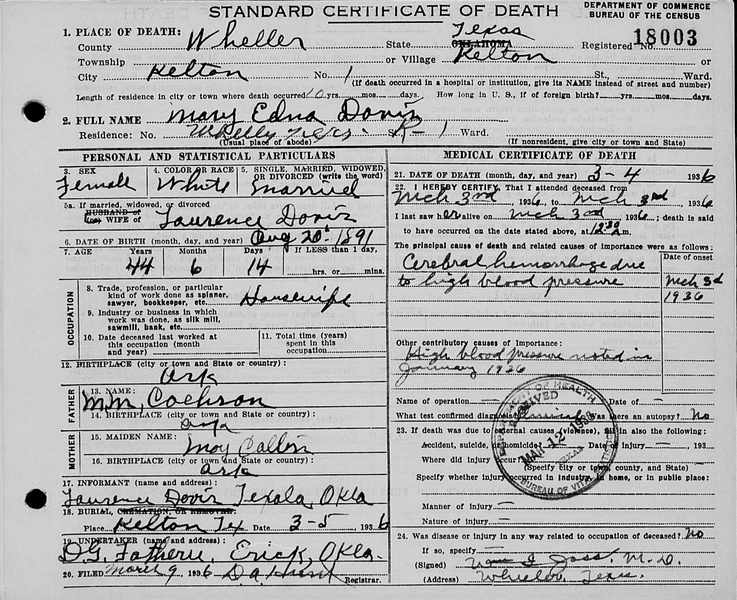 STANDARD CERTIFICATE OF DEATH
DEPARTMENT OF COMMERCE
BUREAU OF THE CENSUS
1. PLACE OF DEATH:
County Wheller State Texas OKLAHOMA Registered No. 18003
Township or Village Kelton or
City Kelton No. 1 St., Ward.
(If death occurred in a hospital or institution, give its NAME instead of street and number)
Length of residence in city or town where death occurred 10 yrs. mos. days. How long in U. S., if of foreign birth? yrs. mos. days.
2. FULL NAME Mary Edna Davis
Residence: No. R-1 Ward.
(Usual place of abode) (If nonresident, give city or town and State)
PERSONAL AND STATISTICAL PARTICULARS
3. SEX Female
4. COLOR OR RACE White
5. SINGLE, MARRIED, WIDOWED, OR DIVORCED (write the word) Married
5a. If married, widowed, or divorced
HUSBAND of
(or) WIFE of Laurence Davis
6. DATE OF BIRTH (month, day, and year) Aug 20 1891
7. AGE Years Months Days If LESS than 1 day,
44 6 14 hrs. or min.
OCCUPATION
8. Trade, profession, or particular kind of work done as spinner, sawyer, bookkeeper, etc. Housewife
9. Industry or business in which work was done, as silk mill, sawmill, bank, etc.
10. Date deceased last worked at this occupation (month and year)
11. Total time (years) spent in this occupation
12. BIRTHPLACE (city or town and State or country)
Ark
FATHER
13. NAME:
M.M. Cochson
14. BIRTHPLACE (city or town and State or country):
MOTHER
15. MAIDEN NAME:
May
16. BIRTHPLACE (city or town and State or country):
Ark
17. INFORMANT (name and address):
Laurence Davis Texola, Okla
18. BURIAL, CREMATION, OR REMOVAL:
Place Kelton Tex Date 3-5 1936
19. UNDERTAKER (name and address):
D.G. Erick, Okla.
20. FILED March 9 1936 D.A. Hunt
Registrar.
MEDICAL CERTIFICATE OF DEATH
21. DATE OF DEATH (month, day, and year) 3-4 1936
22. I HEREBY CERTIFY, That I attended deceased from
Mch 3rd 1936 to Mch 3rd 1936
I last saw her alive on Mch 3rd 1936; death is said
to have occurred on the date stated above, at 12:30 m.
The principal cause of death and related causes of importance were as follows:
Date of onset
Cerebral hemorrhage due
to high blood pressure
Mch 3d
1936
Other contributory causes of importance:
High blood pressure noted in
January 1936
Name of operation — Date of —
What test confirmed diagnosis? Was there an autopsy? No
23. If death was due to external causes (violence), fill in also the following:
Accident, suicide, or homicide? Date of injury — 193
Where did injury occur?
(Specify city or town, county, and State)
Specify whether injury occurred in industry, in home, or in public place:
Manner of injury —
Nature of injury —
24. Was disease or injury in any way related to occupation of deceased? No
If so, specify —
(Signed) M.D.
(Address) Wheeler, Texas.
DEPARTMENT OF HEALTH
RECEIVED
MAR 12 1936
TEXAS
BUREAU OF VITAL STATISTICS